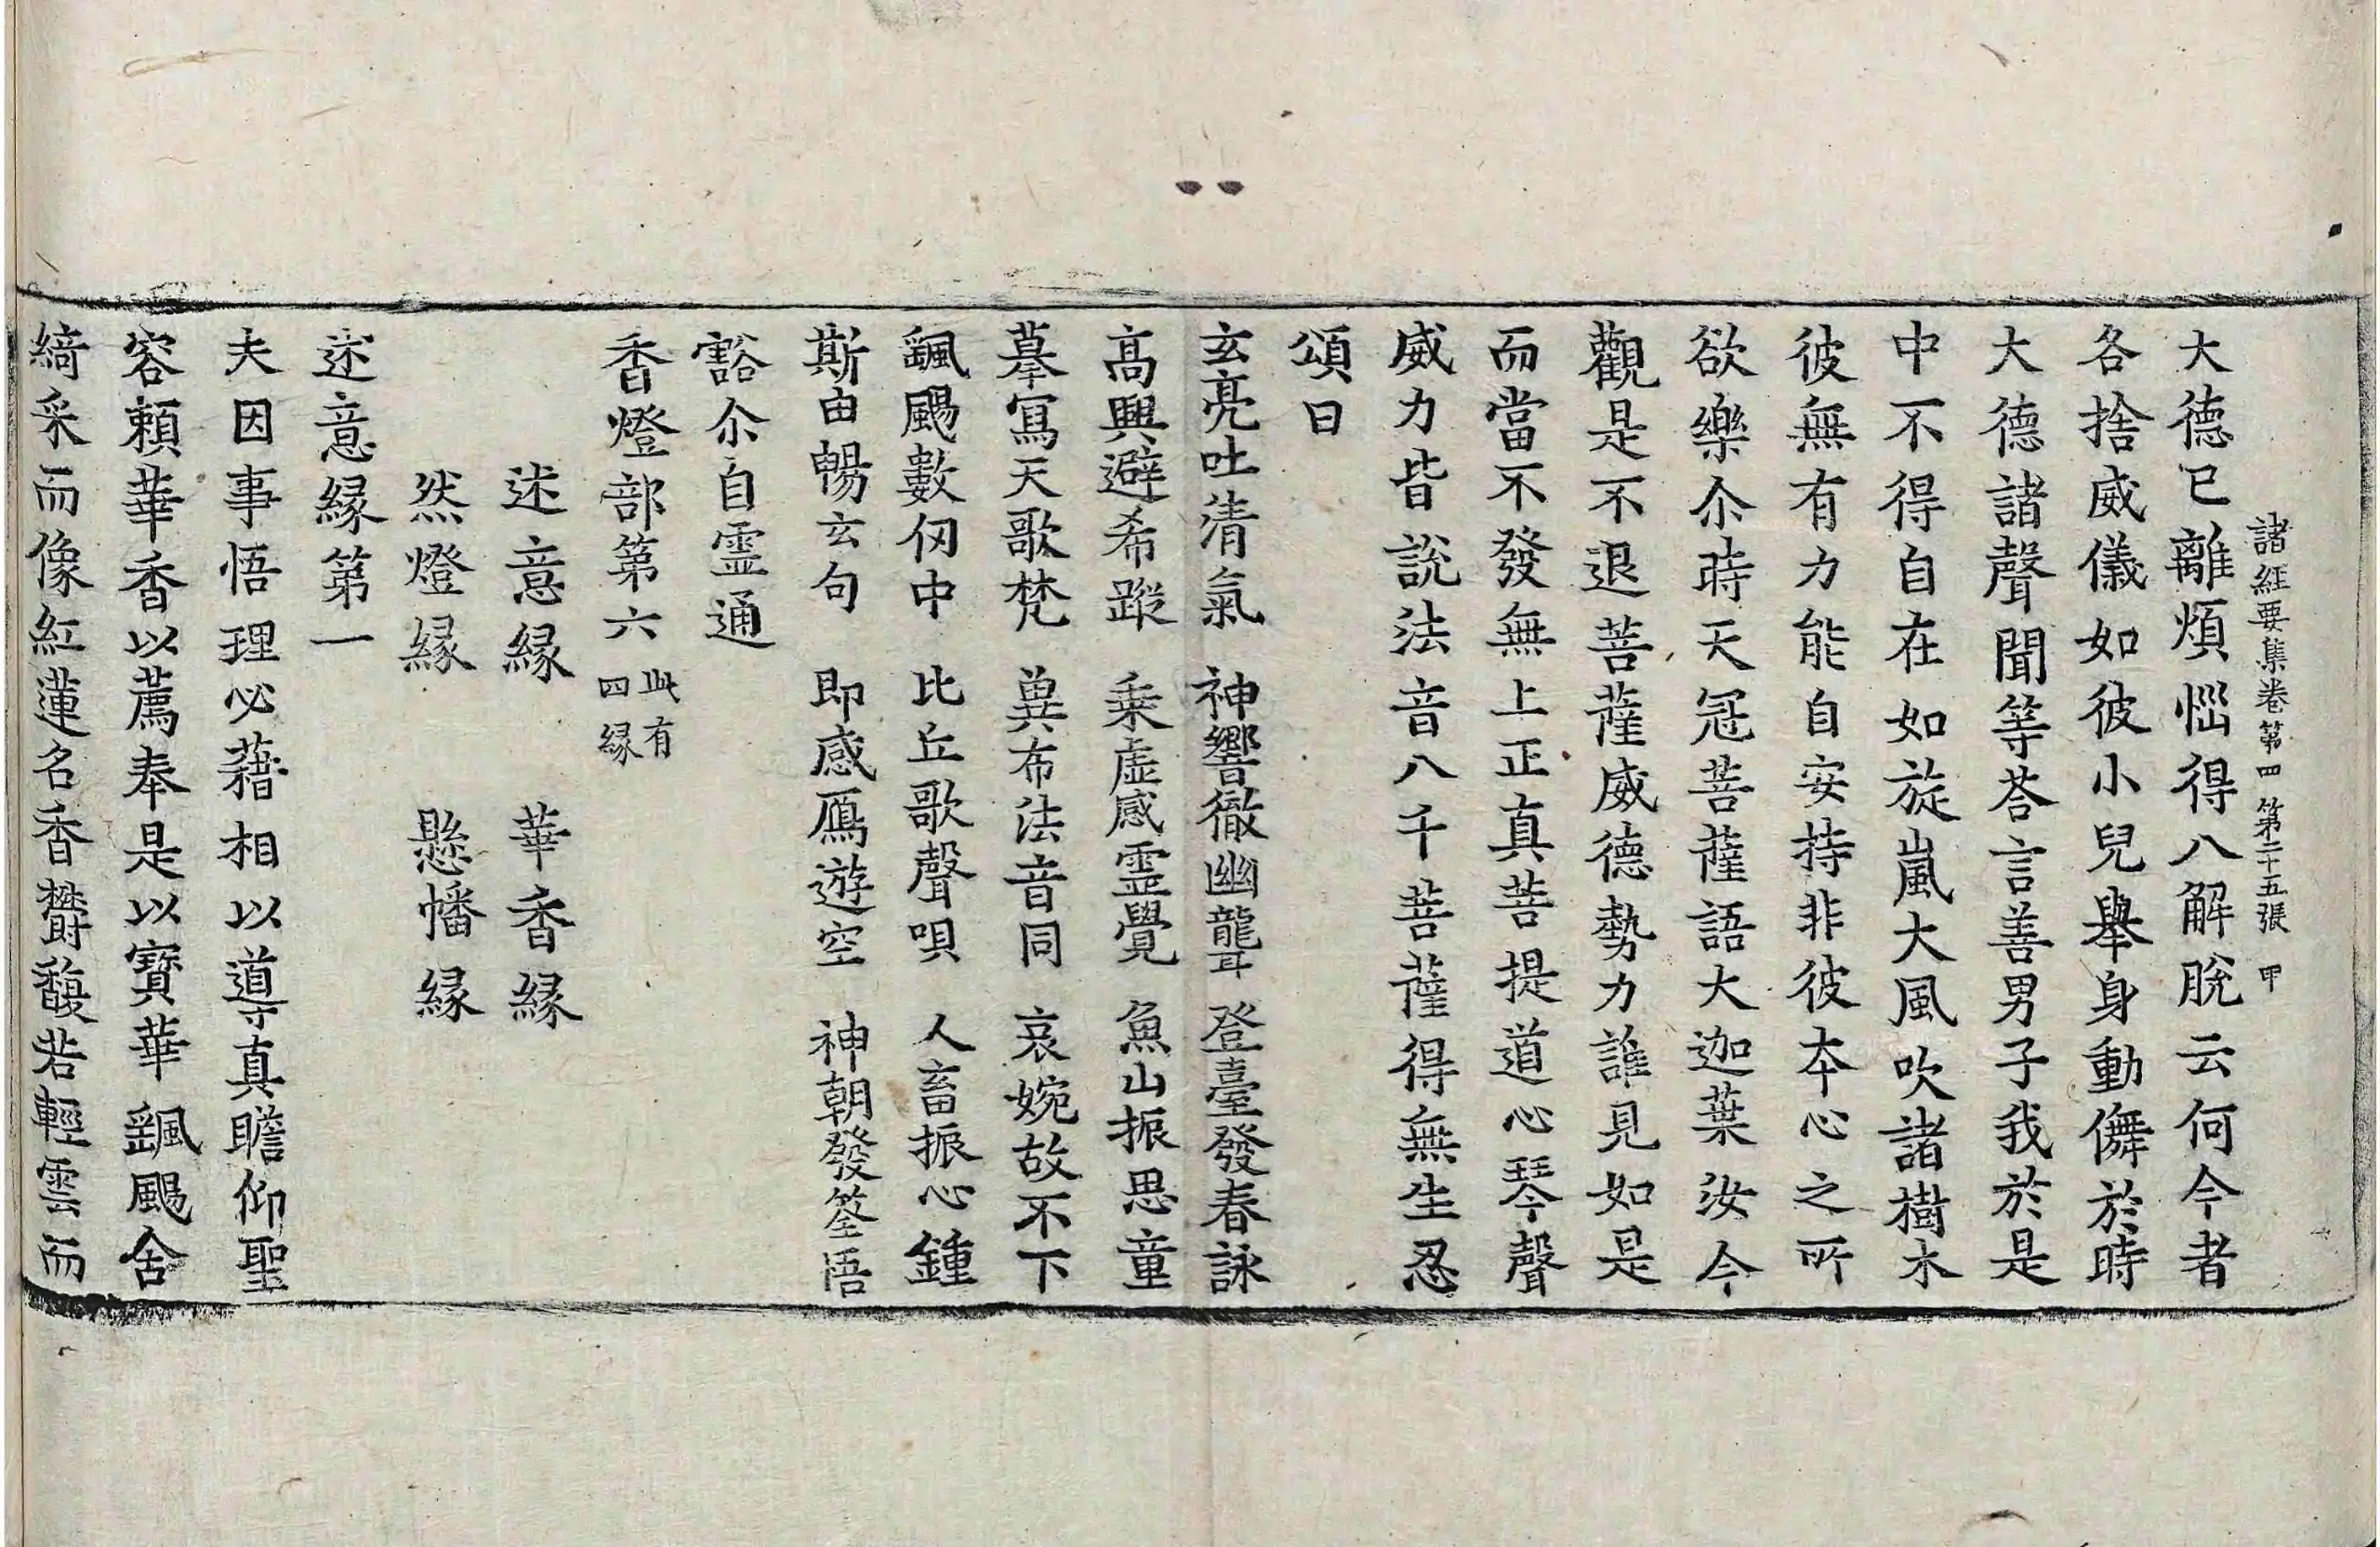 諸經要集卷第四 第二十五張 甲
大德已離煩惱得八解脫云何今者
各捨威儀如彼小兒舉身動儛於時
大德諸聲聞等荅言善男子我於是
中不得自在如旋嵐大風吹諸樹木
彼無有力能自安持非彼本心之所
欲樂尒時天冠菩薩語大迦葉汝今
觀是不退菩薩威德勢力誰見如是
而當不發無上正真菩提道心琴聲
威力皆說法音八千菩薩得無生忍
頌曰
玄亮吐清氣 神響徹幽聾 登臺發春詠
高興避希蹤 乗虛感霊覺 魚山振思童
摹寫天歌梵 冀布法音同 哀婉故不下
飄颺數仞中 比丘歌聲唄 人畜振心鍾
斯由暢玄句 即感鴈遊空 神朝發筌悟
豁尒自霊通
香燈部第六 此有四縁
述意縁 華香縁
然燈縁 懸幡縁
述意縁第一
夫因事悟理必藉相以導真瞻仰聖
容頼華香以薦奉是以寳華飄颺含
綺采而像紅蓮名香欝馥若輕雲而